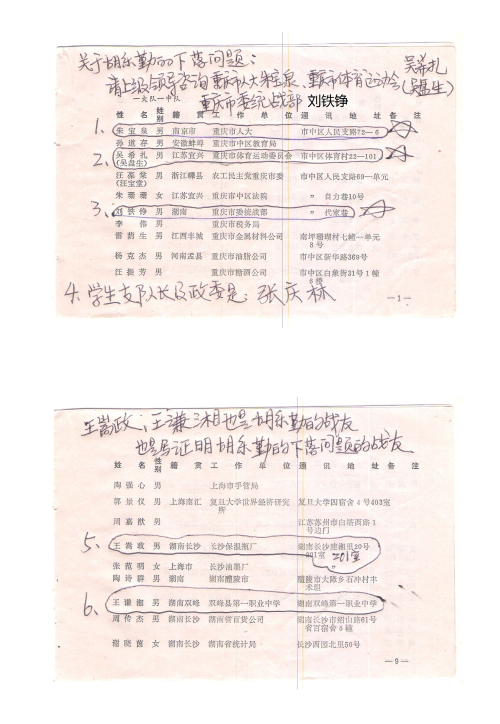 关于胡乐勤的下落问题：
请上级领导咨询重庆市人大朱宝泉、重庆市体育运动会 吴希扎
(吴盘生)
重庆市委统战部 刘铁铮
一大队一中队
姓 名 性别 籍 贯 工 作 单 位 通 讯 地 址 备 注
1. 朱宝泉 男 南京市 重庆市人大 市中区人民支路72—6
孙道存 男 安徽蚌埠 重庆市中区教育局
2. 吴希扎 男 江苏宜兴 重庆市体育运动委员会 市中区体育村22—101
(吴盘生)
汪藻棠 男 浙江嵊县 农工民主党重庆市委 市中区人民支路69—单元
(汪宝堂)
朱珊珊 女 江苏宜兴 重庆市中区法院 〃 自力巷10号
3. 刘铁铮 男 湖南 重庆市委统战部 〃 代家巷
李伟 男 重庆市税务局
雷荫生 男 江西丰城 重庆市金属材料公司 南坪珊瑚村七幢一单元
8号
杨克杰 男 河南孟县 重庆市油脂公司 市中区新华路369号
汪振芳 男 重庆市糖酒公司 市中区白象街31号1幢
6楼
4. 学生支队长及政委是：张庆林
—1—
王嵩政、王谦湘也是胡乐勤的战友
也是写证明胡乐勤的下落问题的战友
姓 名 性别 籍 贯 工 作 单 位 通 讯 地 址 备 注
陶强心 男 上海市手管局
郭景仪 男 上海南汇 复旦大学世界经济研究所 复旦大学四宿舍4号403室
周嘉猷 男 江苏苏州市白塔西路1
号边门
5. 王嵩政 男 湖南长沙 长沙保温瓶厂 湖南长沙建湘里20号
201室 201室
张范明 女 上海市 长沙油墨厂 〃
陶诗群 男 湖南 湖南醴陵市 醴陵市大障乡石冲村丰
术组
6. 王谦湘 男 湖南双峰 双峰县第一职业中学 湖南双峰第一职业中学
周传杰 男 湖南长沙 湖南省百货公司 湖南长沙市韶山路61号
省百宿舍5幢
谢晓茵 女 湖南长沙 湖南省统计局 长沙西园北里50号
—9—